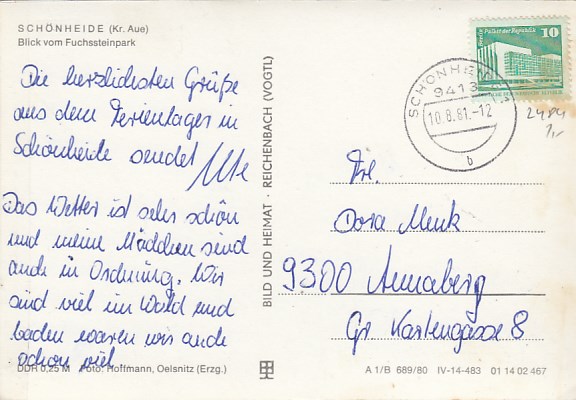 SCHÖNHEIDE (Kr. Aue)
Blick vom Fuchssteinpark
Die herzlichsten Grüße
aus dem Ferienlager in
Schönheide sendet Ute
Das Wetter ist sehr schön
und meine Mädchen sind
auch in Ordnung. Wir
sind viel im Wald und
baden waren wir auch
schon viel
DDR 0,25 M Foto: Hoffmann, Oelsnitz (Erzg.)
BILD UND HEIMAT · REICHENBACH (VOGTL)
Berlin Palast der Republik 10
SCHÖNHEIDE 1
9413
10.8.81.-12
b
2484
Frl.
Dora Menk
9300 Annaberg
Gr Kartengasse 8
A 1/B 689/80 IV-14-483 01 14 02 467